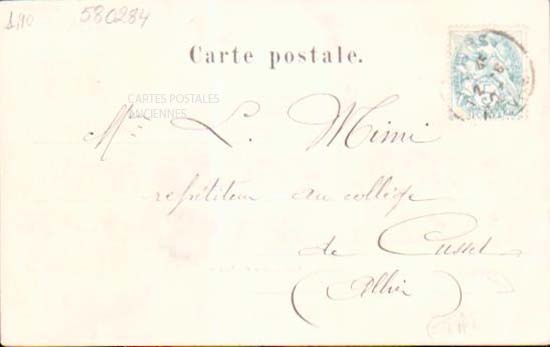 1,10 580284
Carte postale.
CARTES POSTALES
ANCIENNES
L. Mimi
repétiteur au collège
de Cusset
(Allier)